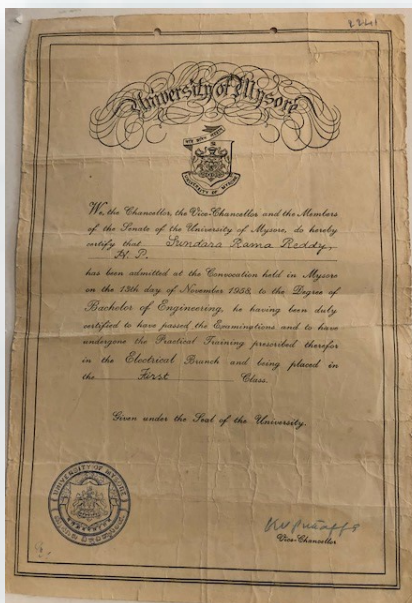 2241
University of Mysore
UNIVERSITY OF MYSORE
We, the Chancellor, the Vice-Chancellor and the Members
of the Senate of the University of Mysore, do hereby
certify that Sundara Rama Reddy,
H. P.
has been admitted at the Convocation held in Mysore
on the 13th day of November 1958, to the Degree of
Bachelor of Engineering, he having been duly
certified to have passed the Examinations and to have
undergone the Practical Training prescribed therefor
in the Electrical Branch and being placed in
the First Class.
Given under the Seal of the University.
UNIVERSITY OF MYSORE
Vice-Chancellor